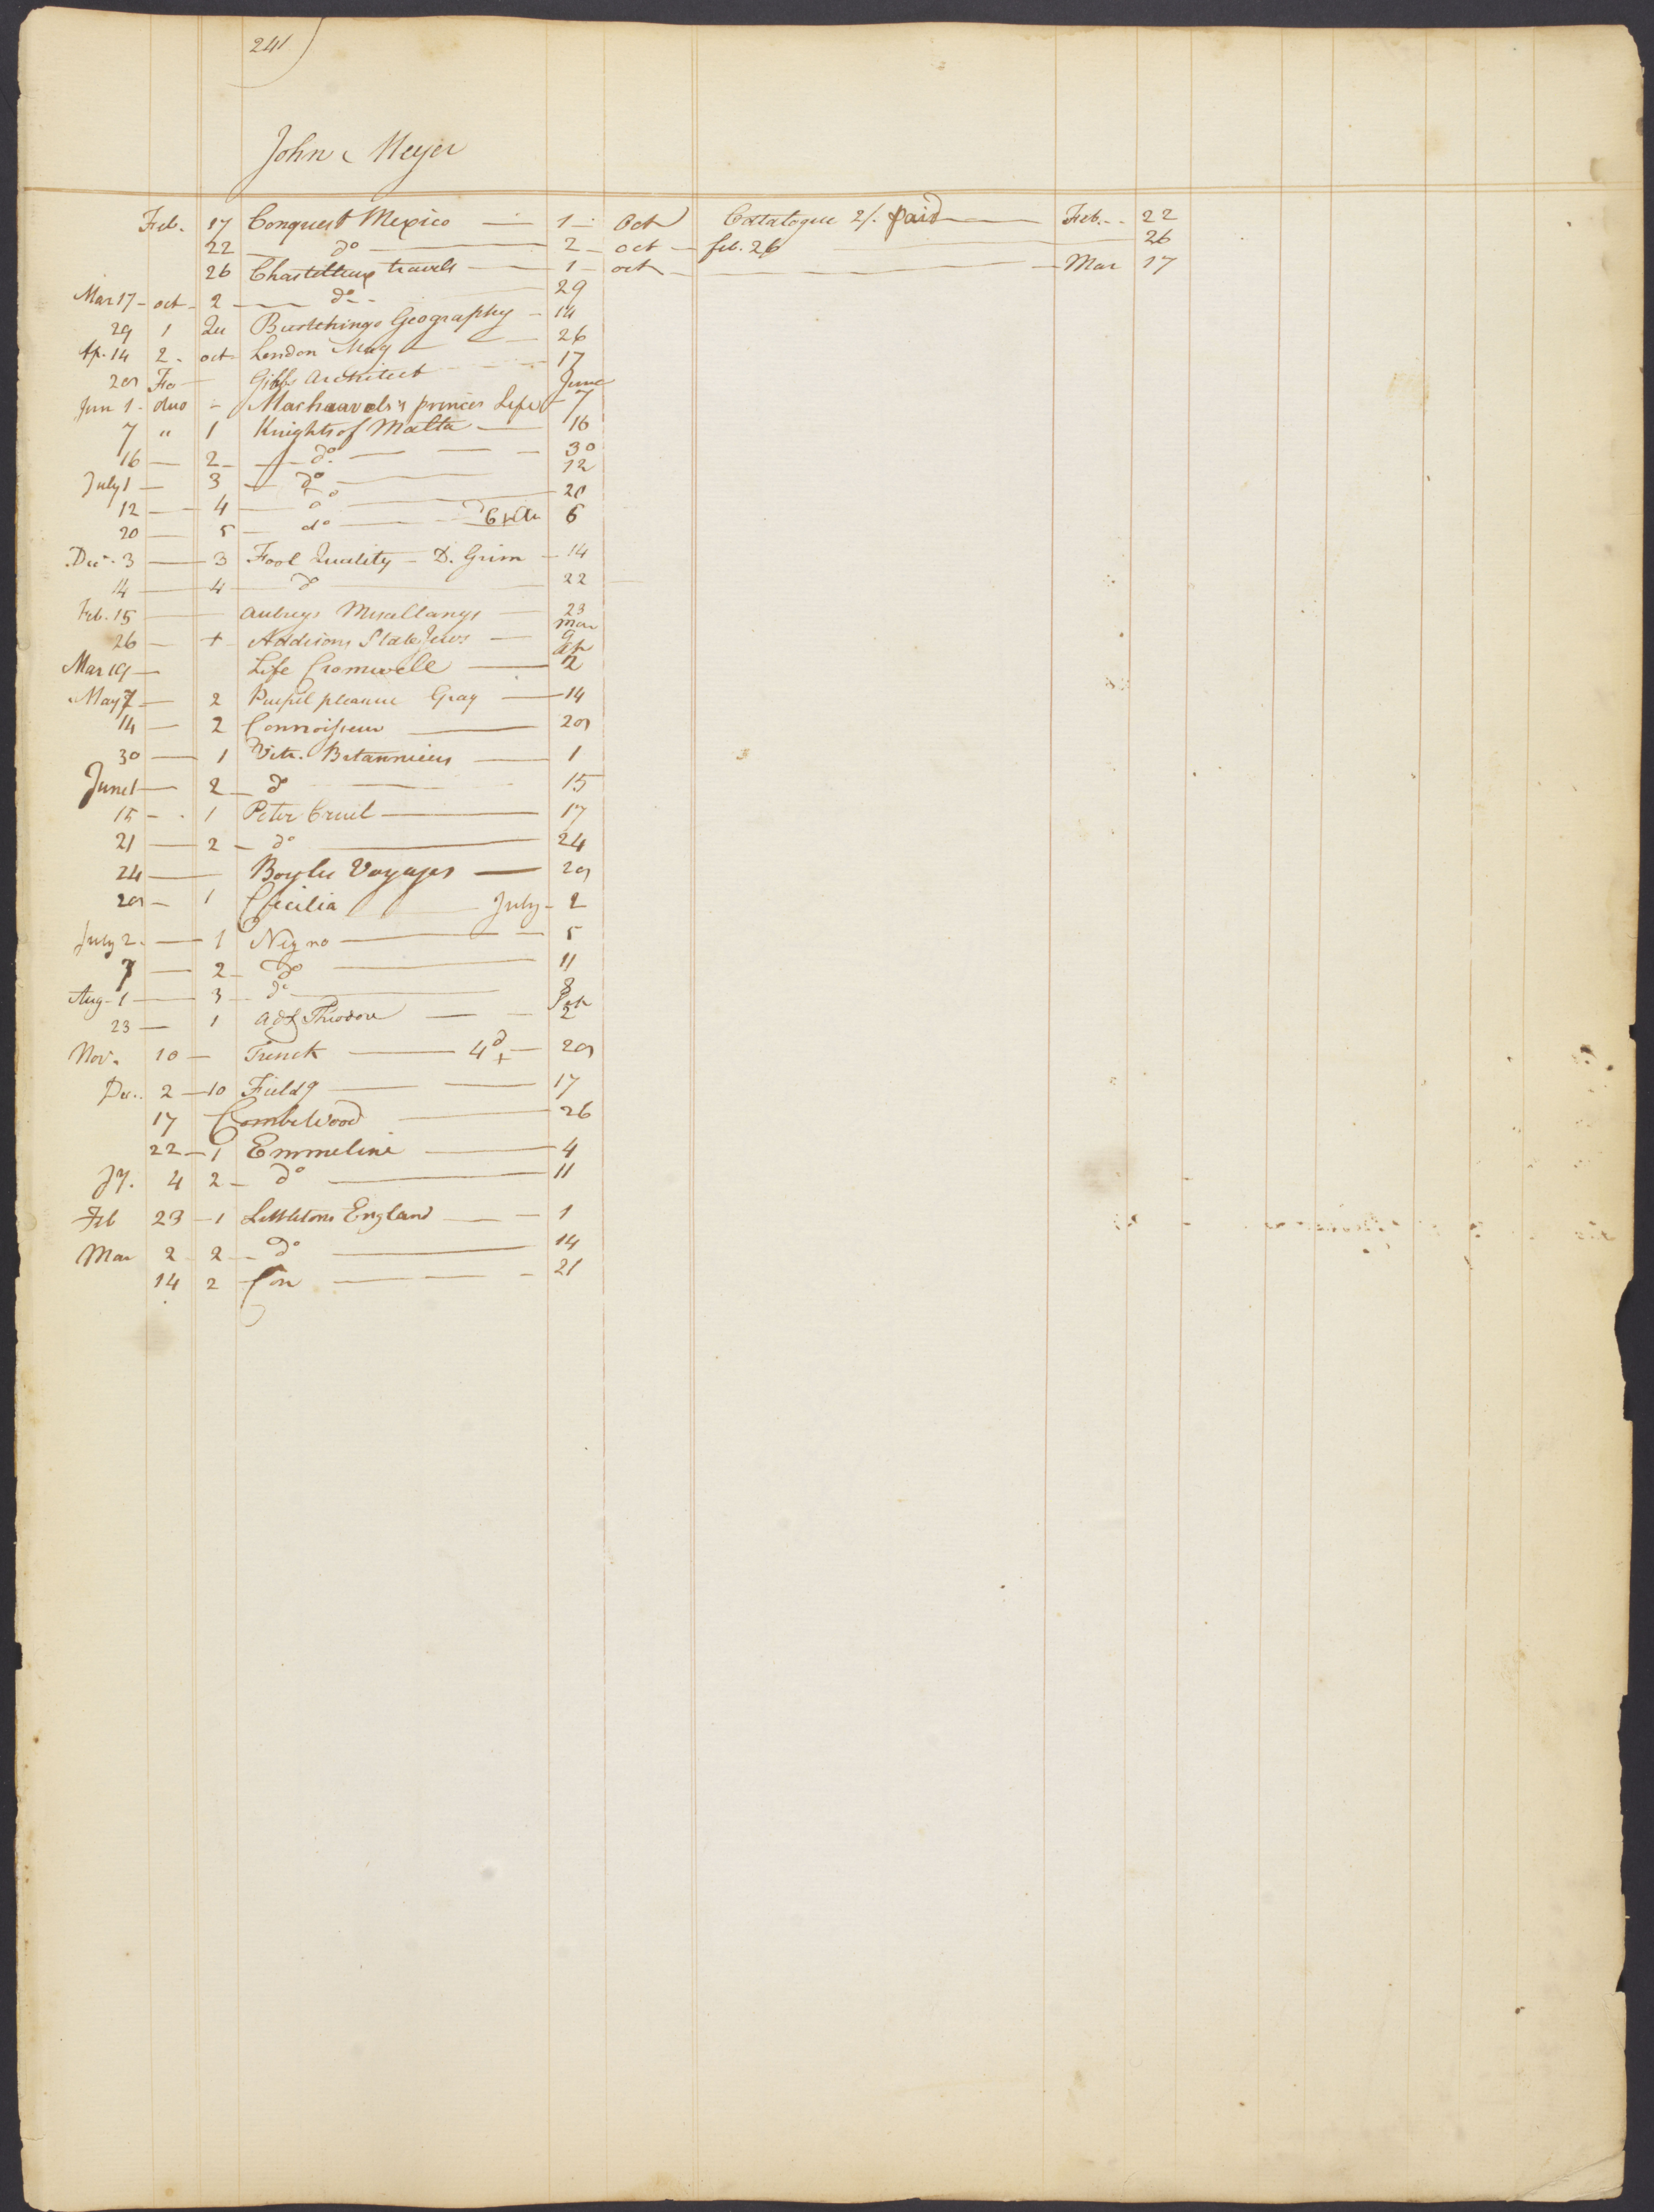 241
John Meyer
Feb. 17 Conquest Mexico — 1 - Oct Catalogue 2/. paid — Feb. 22
22 — do — 2 - oct — feb. 26 — 26
26 Chastellux travels — 1 - oct — Mar 17
Mar 17 - oct - 2 — do — 29
29 1 Qu Buschings Geography - 14
Ap. 14 2 - oct London Mag — 26
29 Fo — Gibbs Architect — 17
June
Jun 1 - duo - Machiavels's princes Life - 7
7 " 1 Knights of Malta — 16
16 — 2 — do — 30
July 1 — 3 — do — 12
12 — 4 — do — 20
20 — 5 — do — 6
Decr. 3 — 3 Fool Quality — D. Grim — 14
14 — 4 — do 22
Feb. 15 — Aubreys Misallanys — 23
Mar
26 — + Addisons State Jews — 9
Ap
Mar 19 — Life Cromwell — 2
May 7 — 2 Pupil pleasure Gray — 14
14 — 2 Connoisseur — 29
30 — 1 Vitr. Britannicus — 1
June 1 — 2 — do — 15
15 - - 1 Peter Cruel — 17
21 — 2 — do — 24
24 — Boyles Voyages — 29
29 — 1 Cecilia — July - 2
July 2. — 1 Negro — 5
7 — 2 — do — 11
Aug. 1 — 3 — do — 8
Sep
23 — 1 Ad Theodore — 2
Nov. 10 — Trenck — 4d + — 29
De.. 2 — 10 Field9 — 17
17 Combe Wood — 26
22 — 1 Emmeline — 4
Jy. 4 2 — do — 11
Feb 23 — 1 Littletons England — 1
Mar 2 2 — do — 14
14 2 Con — 21